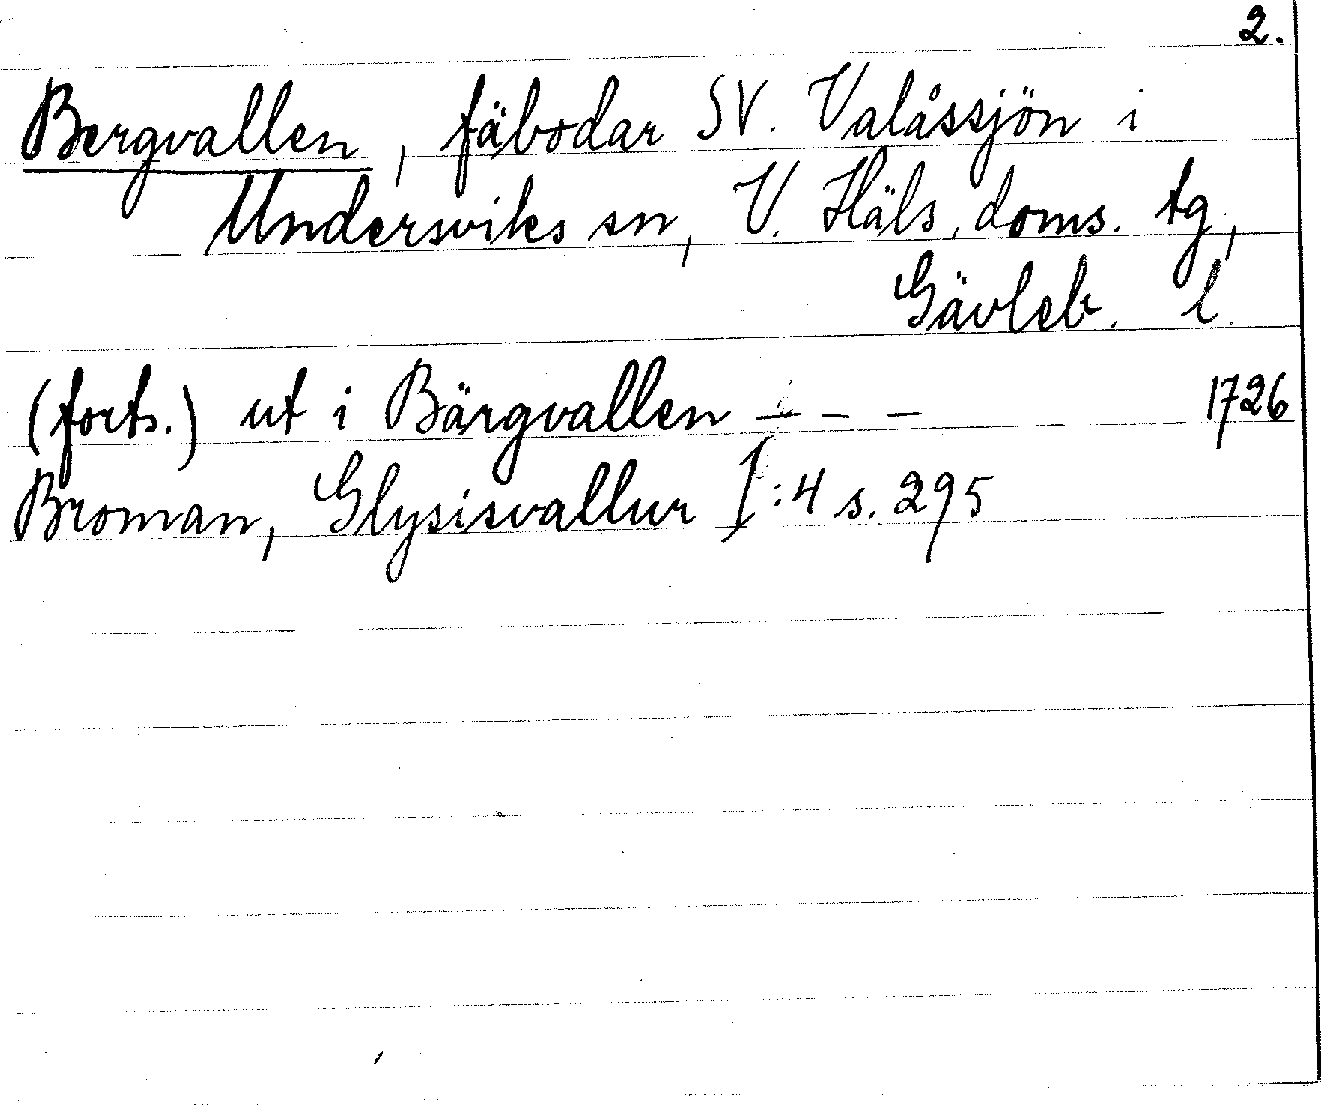 2.
Bergvallen, fäbodar SV. Valåssjön i
Undersviks sn, V. Häls. doms. tg,
Gävleb. l.
(forts.) ut i Bärgvallen – – – 1726
Broman, Glysisvallur I:4 s. 295